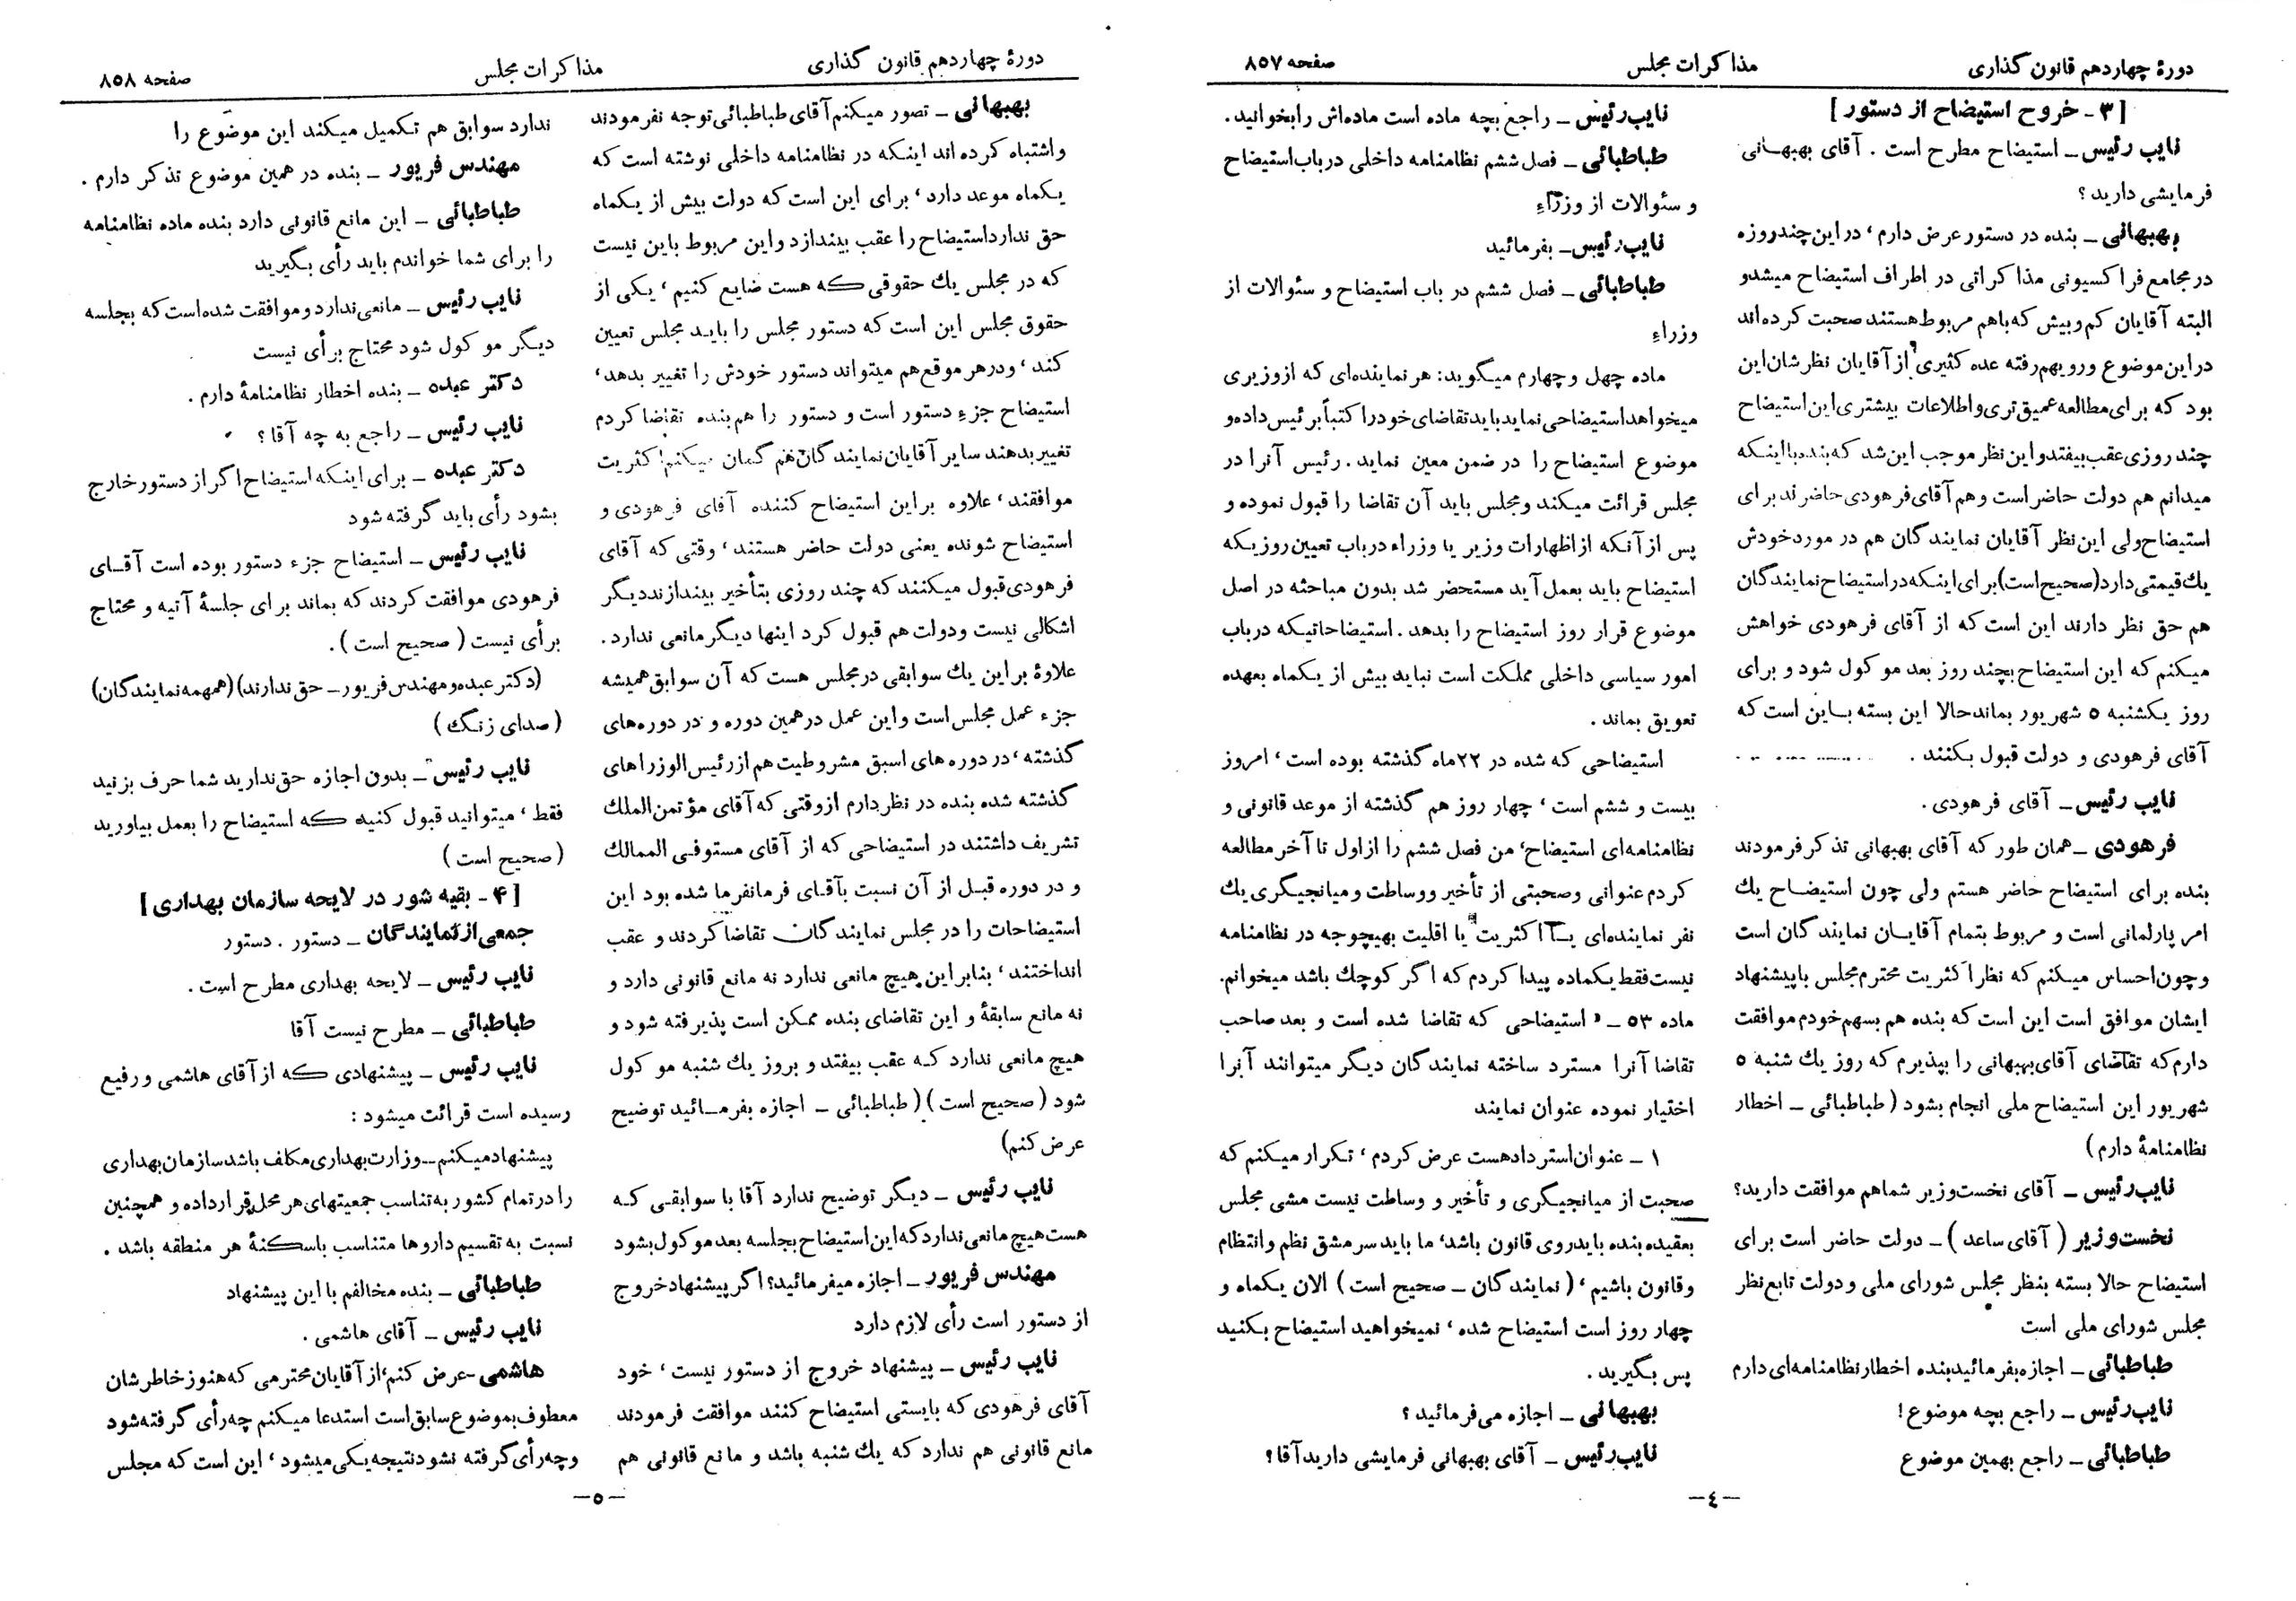 دورهٔ چهاردهم قانون گذاری
مذاکرات مجلس
صفحه ۸۵۷
[ ۳ - خروج استیضاح از دستور ]
نایب رئیس - استیضاح مطرح است . آقای بهبهانی
فرمایشی دارید ؟
بهبهانی - بنده در دستور عرض دارم ، در این چند روزه
در مجامع فراکسیونی مذاکراتی در اطراف استیضاح میشد و
البته آقایان کم و بیش که باهم مربوط هستند صحبت کرده‌اند
در این موضوع و رویهم رفته عده کثیری از آقایان نظرشان این
بود که برای مطالعه عمیق تری و اطلاعات بیشتری این استیضاح
چند روزی عقب بیفتد و این نظر موجب این شد که بنده با اینکه
میدانم هم دولت حاضر است و هم آقای فرهودی حاضرند برای
استیضاح ولی این نظر آقایان نمایندگان هم در مورد خودش
یك قیمتی دارد (صحیح است) برای اینکه در استیضاح نمایندگان
هم حق نظر دارند این است که از آقای فرهودی خواهش
میکنم که این استیضاح بچند روز بعد موکول شود و برای
روز یکشنبه ۵ شهریور بماند حالا این بسته باین است که
آقای فرهودی و دولت قبول بکنند .
نایب رئیس - آقای فرهودی .
فرهودی - همان طور که آقای بهبهانی تذکر فرمودند
بنده برای استیضاح حاضر هستم ولی چون استیضاح یك
امر پارلمانی است و مربوط بتمام آقایان نمایندگان است
و چون احساس میکنم که نظر اکثریت محترم مجلس با پیشنهاد
ایشان موافق است این است که بنده هم بسهم خودم موافقت
دارم که تقاضای آقای بهبهانی را بپذیرم که روز یك شنبه ۵
شهریور این استیضاح ملی انجام بشود ( طباطبائی - اخطار
نظامنامهٔ دارم )
نایب رئیس - آقای نخست وزیر شما هم موافقت دارید؟
نخست وزیر ( آقای ساعد ) - دولت حاضر است برای
استیضاح حالا بسته بنظر مجلس شورای ملی و دولت تابع نظر
مجلس شورای ملی است
طباطبائی - اجازه بفرمائید بنده اخطار نظامنامه‌ای دارم
نایب رئیس - راجع بچه موضوع !
طباطبائی - راجع بهمین موضوع
نایب رئیس - راجع بچه ماده است ماده‌اش را بخوانید.
طباطبائی - فصل ششم نظامنامه داخلی در باب استیضاح
و سئوالات از وزراءِ
نایب رئیس - بفرمائید
طباطبائی - فصل ششم در باب استیضاح و سئوالات از
وزراءِ
ماده چهل و چهارم میگوید: هر نماینده‌ای که از وزیری
میخواهد استیضاحی نماید باید تقاضای خود را کتباً برئیس داده و
موضوع استیضاح را در ضمن معین نماید. رئیس آنرا در
مجلس قرائت میکند و مجلس باید آن تقاضا را قبول نموده و
پس از آنکه از اظهارات وزیر یا وزراء در باب تعیین روزیکه
استیضاح باید بعمل آید مستحضر شد بدون مباحثه در اصل
موضوع قرار روز استیضاح را بدهد. استیضاحاتیکه در باب
امور سیاسی داخلی مملکت است نباید بیش از یکماه بعهده
تعویق بماند .
استیضاحی که شده در ۲۲ ماه گذشته بوده است ، امروز
بیست و ششم است ، چهار روز هم گذشته از موعد قانونی و
نظامنامه‌ای استیضاح، من فصل ششم را از اول تا آخر مطالعه
کردم عنوانی و صحبتی از تأخیر و وساطت و میانجیگری یك
نفر نماینده‌ای یا اکثریت یا اقلیت بهیچوجه در نظامنامه
نیست فقط یکماده پیدا کردم که اگر کوچك باشد میخوانم.
ماده ۵۳ - استیضاحی که تقاضا شده است و بعد صاحب
تقاضا آنرا مسترد ساخته نمایندگان دیگر میتوانند آنرا
اختیار نموده عنوان نمایند
۱ - عنوان استرداد هست عرض کردم ، تکرار میکنم که
صحبت از میانجیگری و تأخیر و وساطت نیست مشی مجلس
بعقیده بنده باید روی قانون باشد، ما باید سرمشق نظم و انتظام
و قانون باشیم ، ( نمایندگان - صحیح است ) الان یکماه و
چهار روز است استیضاح شده ، نمیخواهید استیضاح بکنید
پس بگیرید .
بهبهانی - اجازه می‌فرمائید ؟
نایب رئیس - آقای بهبهانی فرمایشی دارید آقا؟
-۴-
دورهٔ چهاردهم قانون گذاری
مذاکرات مجلس
صفحه ۸۵۸
بهبهانی - تصور میکنم آقای طباطبائی توجه نفرمودند
و اشتباه کرده اند اینکه در نظامنامه داخلی نوشته است که
یکماه موعد دارد ، برای این است که دولت بیش از یکماه
حق ندارد استیضاح را عقب بیندازد و این مربوط باین نیست
که در مجلس یك حقوقی که هست ضایع کنیم ، یکی از
حقوق مجلس این است که دستور مجلس را باید مجلس تعیین
کند ، و در هر موقع هم میتواند دستور خودش را تغییر بدهد،
استیضاح جزءِ دستور است و دستور را هم بنده تقاضا کردم
تغییر بدهند سایر آقایان نمایندگان هم گمان میکنم اکثریت
موافقند ، علاوه بر این استیضاح کننده آقای فرهودی و
استیضاح شونده یعنی دولت حاضر هستند ، وقتی که آقای
فرهودی قبول میکنند که چند روزی بتأخیر بیندازند دیگر
اشکالی نیست و دولت هم قبول کرد اینها دیگر مانعی ندارد.
علاوهٔ بر این یك سوابقی در مجلس هست که آن سوابق همیشه
جزء عمل مجلس است و این عمل در همین دوره و در دوره‌های
گذشته ، در دوره های اسبق مشروطیت هم از رئیس الوزراهای
گذشته شده بنده در نظر دارم از وقتی که آقای مؤتمن الملك
تشریف داشتند در استیضاحی که از آقای مستوفی الممالك
و در دوره قبل از آن نسبت بآقای فرمانفرما شده بود این
استیضاحات را در مجلس نمایندگان تقاضا کردند و عقب
انداختند ، بنابر این هیچ مانعی ندارد نه مانع قانونی دارد و
نه مانع سابقهٔ و این تقاضای بنده ممکن است پذیرفته شود و
هیچ مانعی ندارد که عقب بیفتد و بروز یك شنبه موکول
شود ( صحیح است ) ( طباطبائی - اجازه بفرمائید توضیح
عرض کنم)
نایب رئیس - دیگر توضیح ندارد آقا با سوابقی که
هست هیچ مانعی ندارد که این استیضاح بجلسه بعد موکول بشود
مهندس فریور - اجازه میفرمائید؟ اگر پیشنهاد خروج
از دستور است رأی لازم دارد
نایب رئیس - پیشنهاد خروج از دستور نیست ، خود
آقای فرهودی که بایستی استیضاح کنند موافقت فرمودند
مانع قانونی هم ندارد که یك شنبه باشد و مانع قانونی هم
ندارد سوابق هم تکمیل میکند این موضوع را
مهندس فریور - بنده در همین موضوع تذکر دارم .
طباطبائی - این مانع قانونی دارد بنده ماده نظامنامه
را برای شما خواندم باید رأی بگیرید
نایب رئیس - مانعی ندارد و موافقت شده است که بجلسه
دیگر موکول شود محتاج برأی نیست
دکتر عبده - بنده اخطار نظامنامهٔ دارم .
نایب رئیس - راجع به چه آقا ؟
دکتر عبده - برای اینکه استیضاح اگر از دستور خارج
بشود رأی باید گرفته شود
نایب رئیس - استیضاح جزء دستور بوده است آقای
فرهودی موافقت کردند که بماند برای جلسهٔ آتیه و محتاج
برأی نیست ( صحیح است ) .
(دکتر عبده و مهندس فریور - حق ندارند) (همهمه نمایندگان)
( صدای زنگ )
نایب رئیس - بدون اجازه حق ندارید شما حرف بزنید
فقط ، میتوانید قبول کنید که استیضاح را بعمل بیاورید
( صحیح است )
[ ۴ - بقیه شور در لایحه سازمان بهداری ]
جمعی از نمایندگان - دستور . دستور
نایب رئیس - لایحه بهداری مطرح است .
طباطبائی - مطرح نیست آقا
نایب رئیس - پیشنهادی که از آقای هاشمی و رفیع
رسیده است قرائت میشود :
پیشنهاد میکنم - وزارت بهداری مکلف باشد سازمان بهداری
را در تمام کشور به تناسب جمعیتهای هر محل قرار داده و همچنین
نسبت به تقسیم داروها متناسب باسکنهٔ هر منطقه باشد .
طباطبائی - بنده مخالفم با این پیشنهاد
نایب رئیس - آقای هاشمی .
هاشمی - عرض کنم، از آقایان محترمی که هنوز خاطرشان
معطوف بموضوع سابق است استدعا میکنم چه رأی گرفته شود
و چه رأی گرفته نشود نتیجه یکی میشود ، این است که مجلس
-۵-